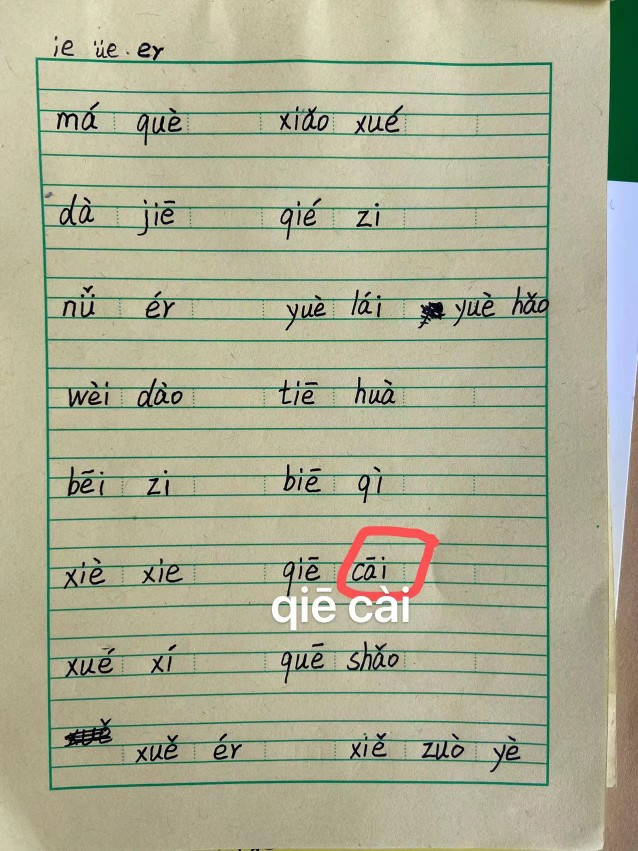 ie üe er
má què xiǎo xué
dà jiē qié zi
nǚ ér yuè lái yuè hǎo
wèi dào tiē huà
bēi zi biē qì
xiè xie qiē cāi
qiē cài
xué xí quē shǎo
xuě ér xiě zuò yè